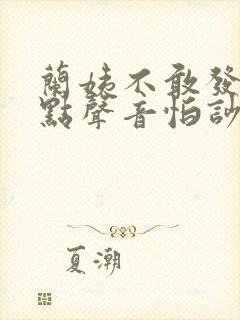 蘭姨不敢發
點聲音怕訬
夏潮